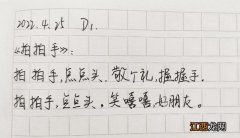 2022.4.25 D1.
《拍拍手》:
拍拍手,点点头,敬个礼,握握手.
拍拍手,点点头,笑嘻嘻,好朋友。